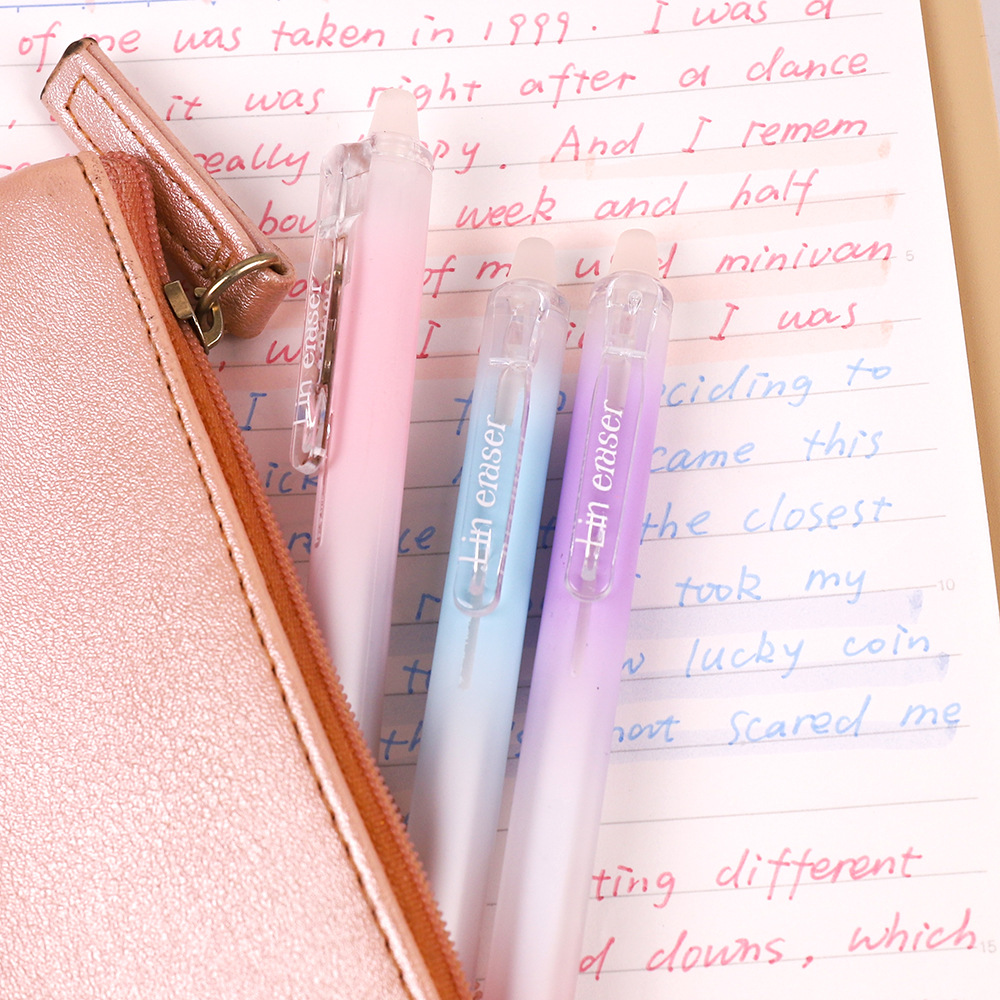 of me was taken in 1999. I was a
it was right after a dance
really happy. And I remem
week and half
of my used minivan
5
I I was
I deciding to
came this
the closest
took my
10
lucky coin
scared me
ting different
downs, which
15
Lin eraser
Lin eraser
Lin eraser